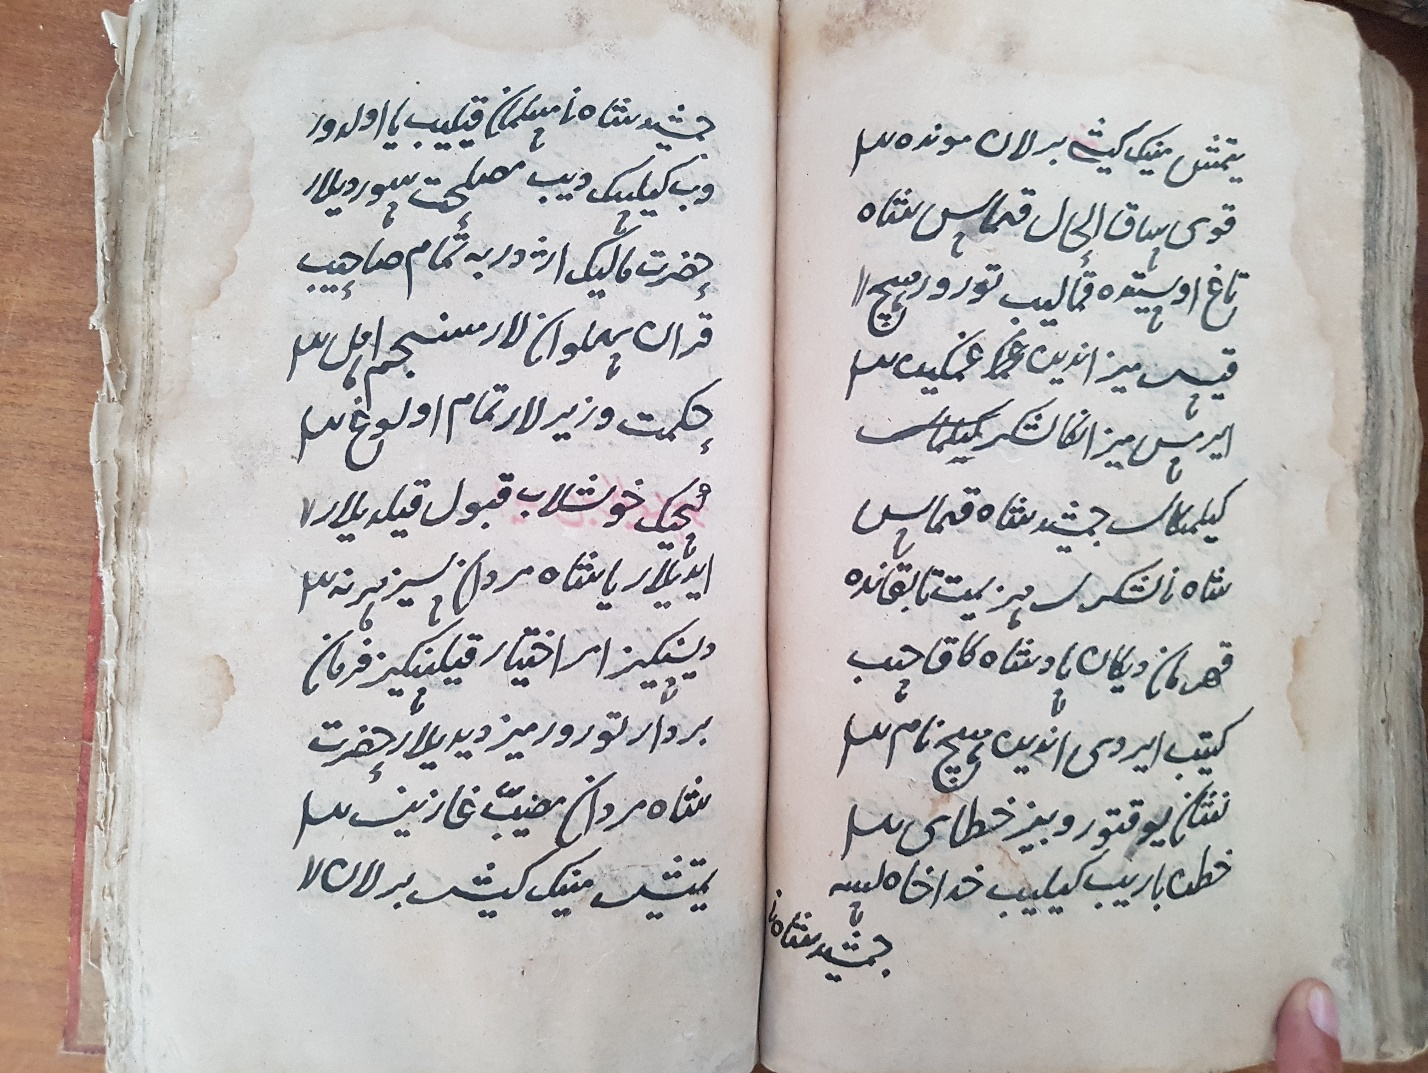 یتمش مینک کیشی برلان مونده
قوی ساق الحال قهماس شاه
تاغ اوستیده قمالیب تورور هیچ
قیس میز اندین غمکین
ایرمس میز انکا لشکر کیلماسا
کیلمکاس جمشید شاه قهماس
شاه نا لشکر هزیمت تابقانده
قهرمان دیکان پادشاه کا قاچیب
کیتب ایردی اندین هیچ نام
نشان یوقتور و بیز خطای
خطن باریب کیلیب خدا خاه لیسه
جمشید شاه نا
جمشید شاه نا مسلمان قیلیب یا اولدور
وب کیلینک دیب مصلحت سوردیلار
حضرت مالیک اژدر به تمام صاحیب
قران پهلوان لار منجم اهل
حکمت وزیر لار تمام اولوغ
کیچیک خوشلاب قبول قیلدیلار
ایدیلار یا شاه مردان سیز هر نه
دیسنکیز امر اختیار قیلینکیز فرمان
بردار تورور میز دیدیلار حضرت
شاه مردان مضیب غازینی
یتمش مینک کیشی برلان